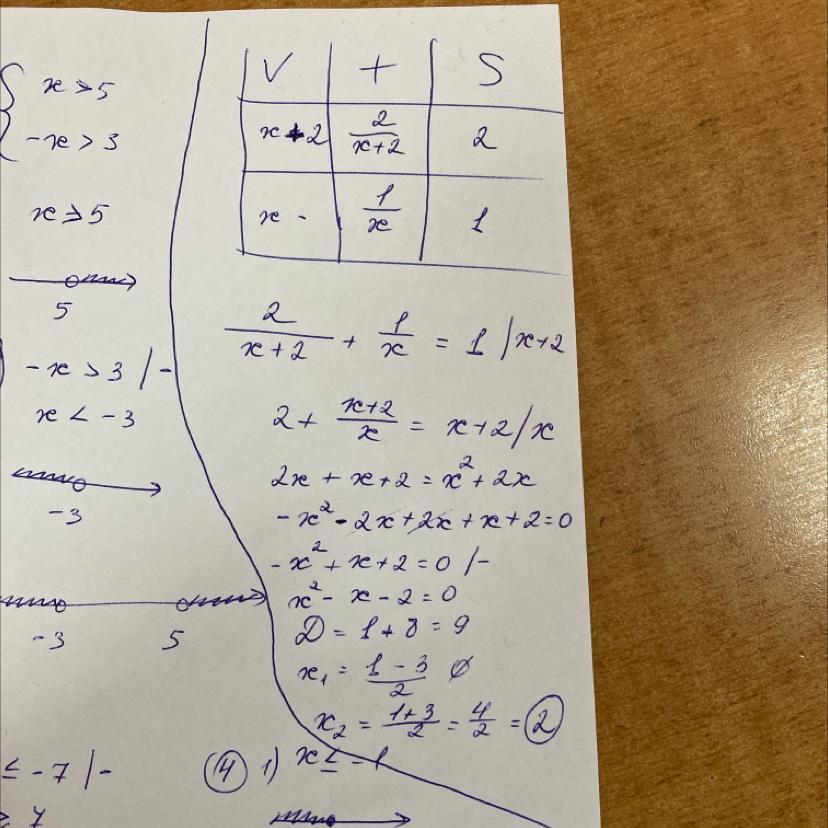 x > 5
-x > 3
x > 5
5
-x > 3 / -
x < -3
-3
-3 5
≤ -7 / -
≥ 7
V t S
x+2 2/(x+2) 2
x - 1/x 1
2/(x+2) + 1/x = 1 / x+2
2 + (x+2)/x = x+2 / x
2x + x + 2 = x² + 2x
-x² - 2x + 2x + x + 2 = 0
-x² + x + 2 = 0 / -
x² - x - 2 = 0
D = 1 + 8 = 9
x₁ = (1-3)/2 ∅
x₂ = (1+3)/2 = 4/2 = 2
(4) 1) x ≤ -1